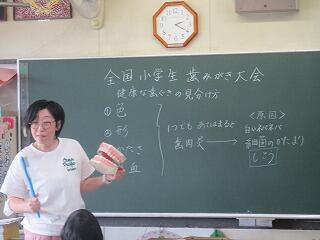 全国小学生歯みがき大会
健康な歯ぐきの見分け方
①色
②形
かたさ
血
1つでもあてはまると
歯肉炎
<原因>
白いネバネバ
細菌のかたまり
しこう